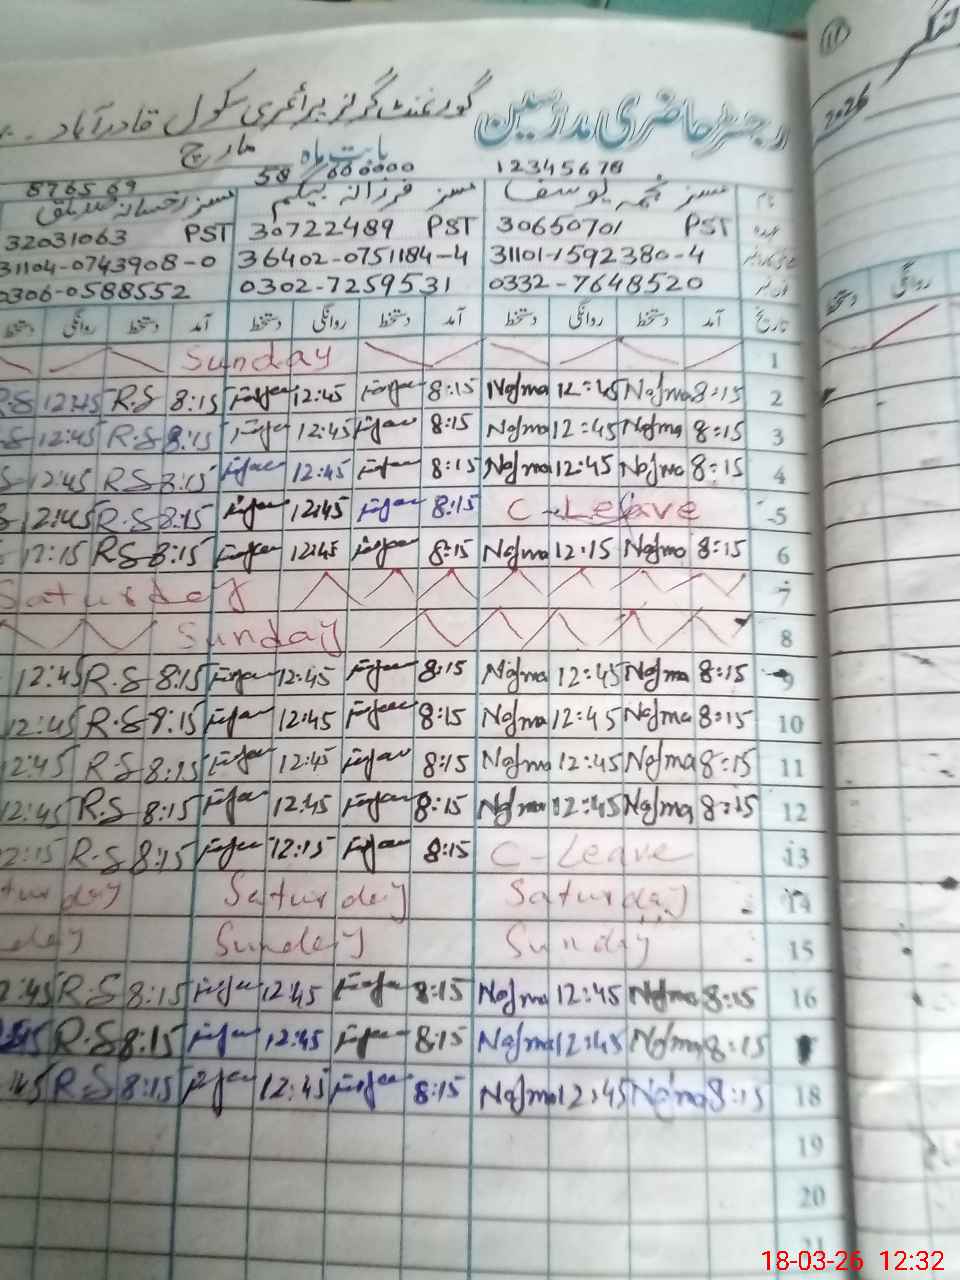 رجسٹر حاضری مدرسین گورنمنٹ گرلز پرائمری سکول قادرآباد
بابت ماہ مارچ
12345678
876569
نام مسز نجمہ یوسف مسز فرزانہ بیگم مسز رخسانہ
عہدہ 30650701 PST 30722489 PST 32031063 PST
31101-1592380-4 36402-0751184-4 31104-0743908-0
0332-7648520 0302-7259531 0306-0588552
تاریخ آمد دستخط روانگی دستخط آمد دستخط روانگی دستخط آمد دستخط روانگی دستخط
1 Sunday
2 8:15 Najma 12:45 Najma 8:15 12:45 8:15 R.S 12:45 R.S
3 8:15 Najma 12:45 Najma 8:15 12:45 8:15 R.S 12:45
4 8:15 Najma 12:45 Najma 8:15 12:45 8:15 R.S 12:45
5 C-Leave 8:15 12:45 8:15 R.S 12:45
6 8:15 Najma 12:15 Najma 8:15 12:45 8:15 R.S 12:15
7 Saturday
8 Sunday
9 8:15 Najma 12:45 Najma 8:15 12:45 8:15 R.S 12:45
10 8:15 Najma 12:45 Najma 8:15 12:45 8:15 R.S 12:45
11 8:15 Najma 12:45 Najma 8:15 12:45 8:15 R.S 12:45
12 8:15 Najma 12:45 Najma 8:15 12:45 8:15 R.S 12:45
13 C-Leave 8:15 12:15 8:15 R.S 2:15
14 Saturday Saturday turday
15 Sunday Sunday day
16 8:15 Najma 12:45 Najma 8:15 12:45 8:15 R.S 2:45
8:15 Najma 12:45 Najma 8:15 12:45 8:15 R.S
18 8:15 Najma 12:45 Najma 8:15 12:45 8:15 R.S :45
19
20
21
2026
روانگی دستخط
18-03-26 12:32